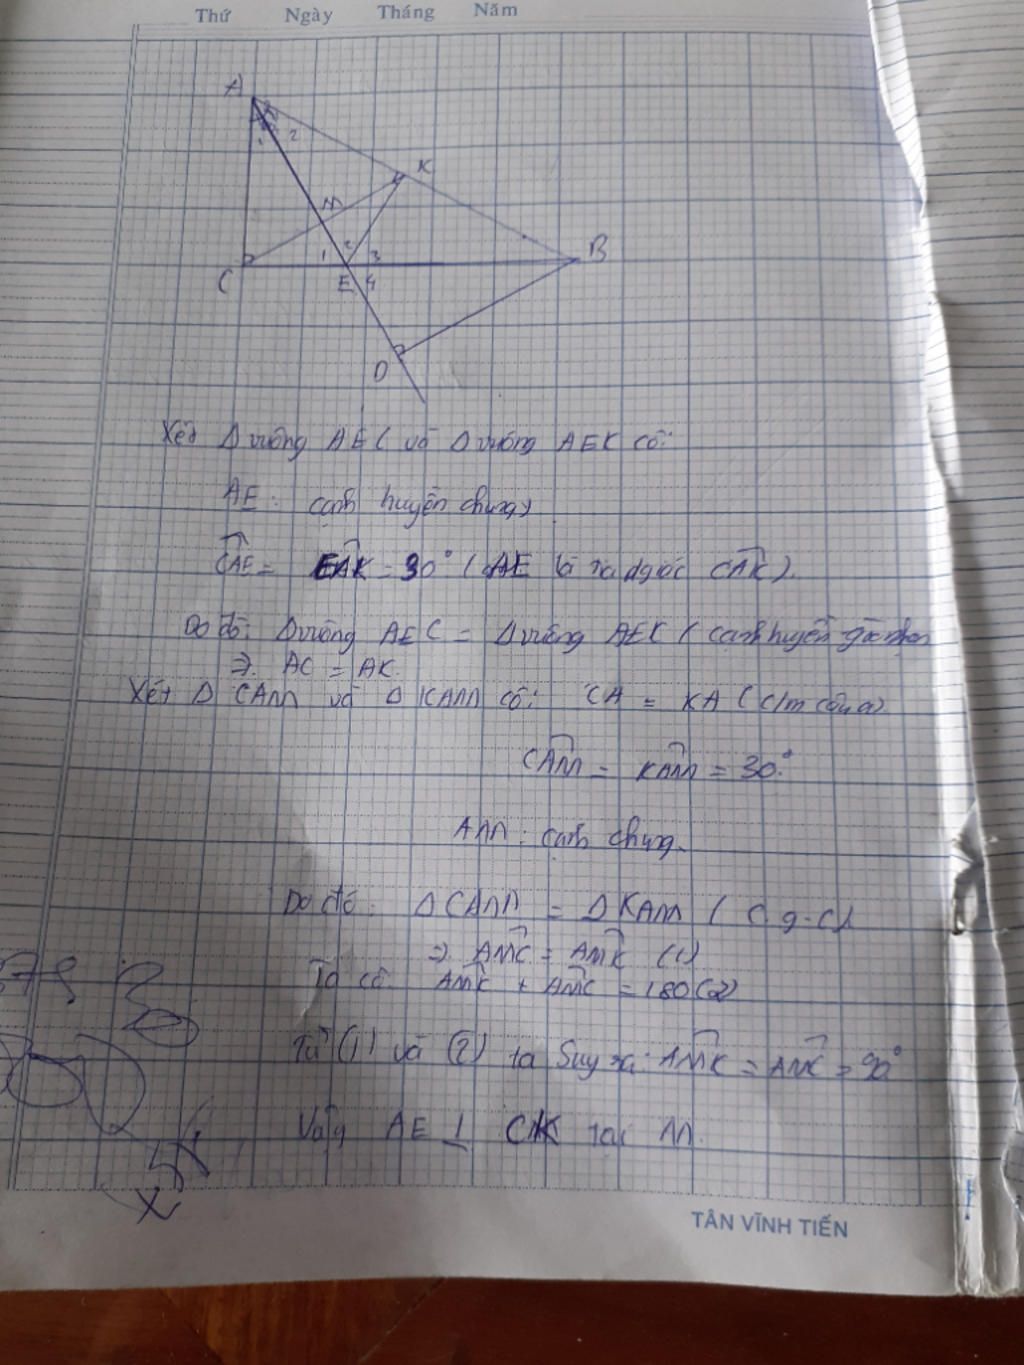 Thứ Ngày Tháng Năm
A
2
K
M
2
1 3
C E 4 B
D
Xét Δ vuông AEC và Δ vuông AEK có:
AE: cạnh huyền chung
CAE = EAK = 30° (AE là tia pgiác CAK).
Do đó: Δ vuông AEC = Δ vuông AEK (cạnh huyền góc nhọn
⇒ AC = AK.
Xét Δ CAM và Δ KAM có: CA = KA (c/m câu a)
CAM = KAM = 30°
AM: cạnh chung.
Do đó: Δ CAM = Δ KAM (c.g.c)
⇒ AMC = AMK (1)
Ta có: AMK + AMC = 180 (2)
Từ (1) và (2) ta Suy ra: AMK = AMC = 90°
Vậy AE ⊥ CK tại M.
TÂN VĨNH TIẾN